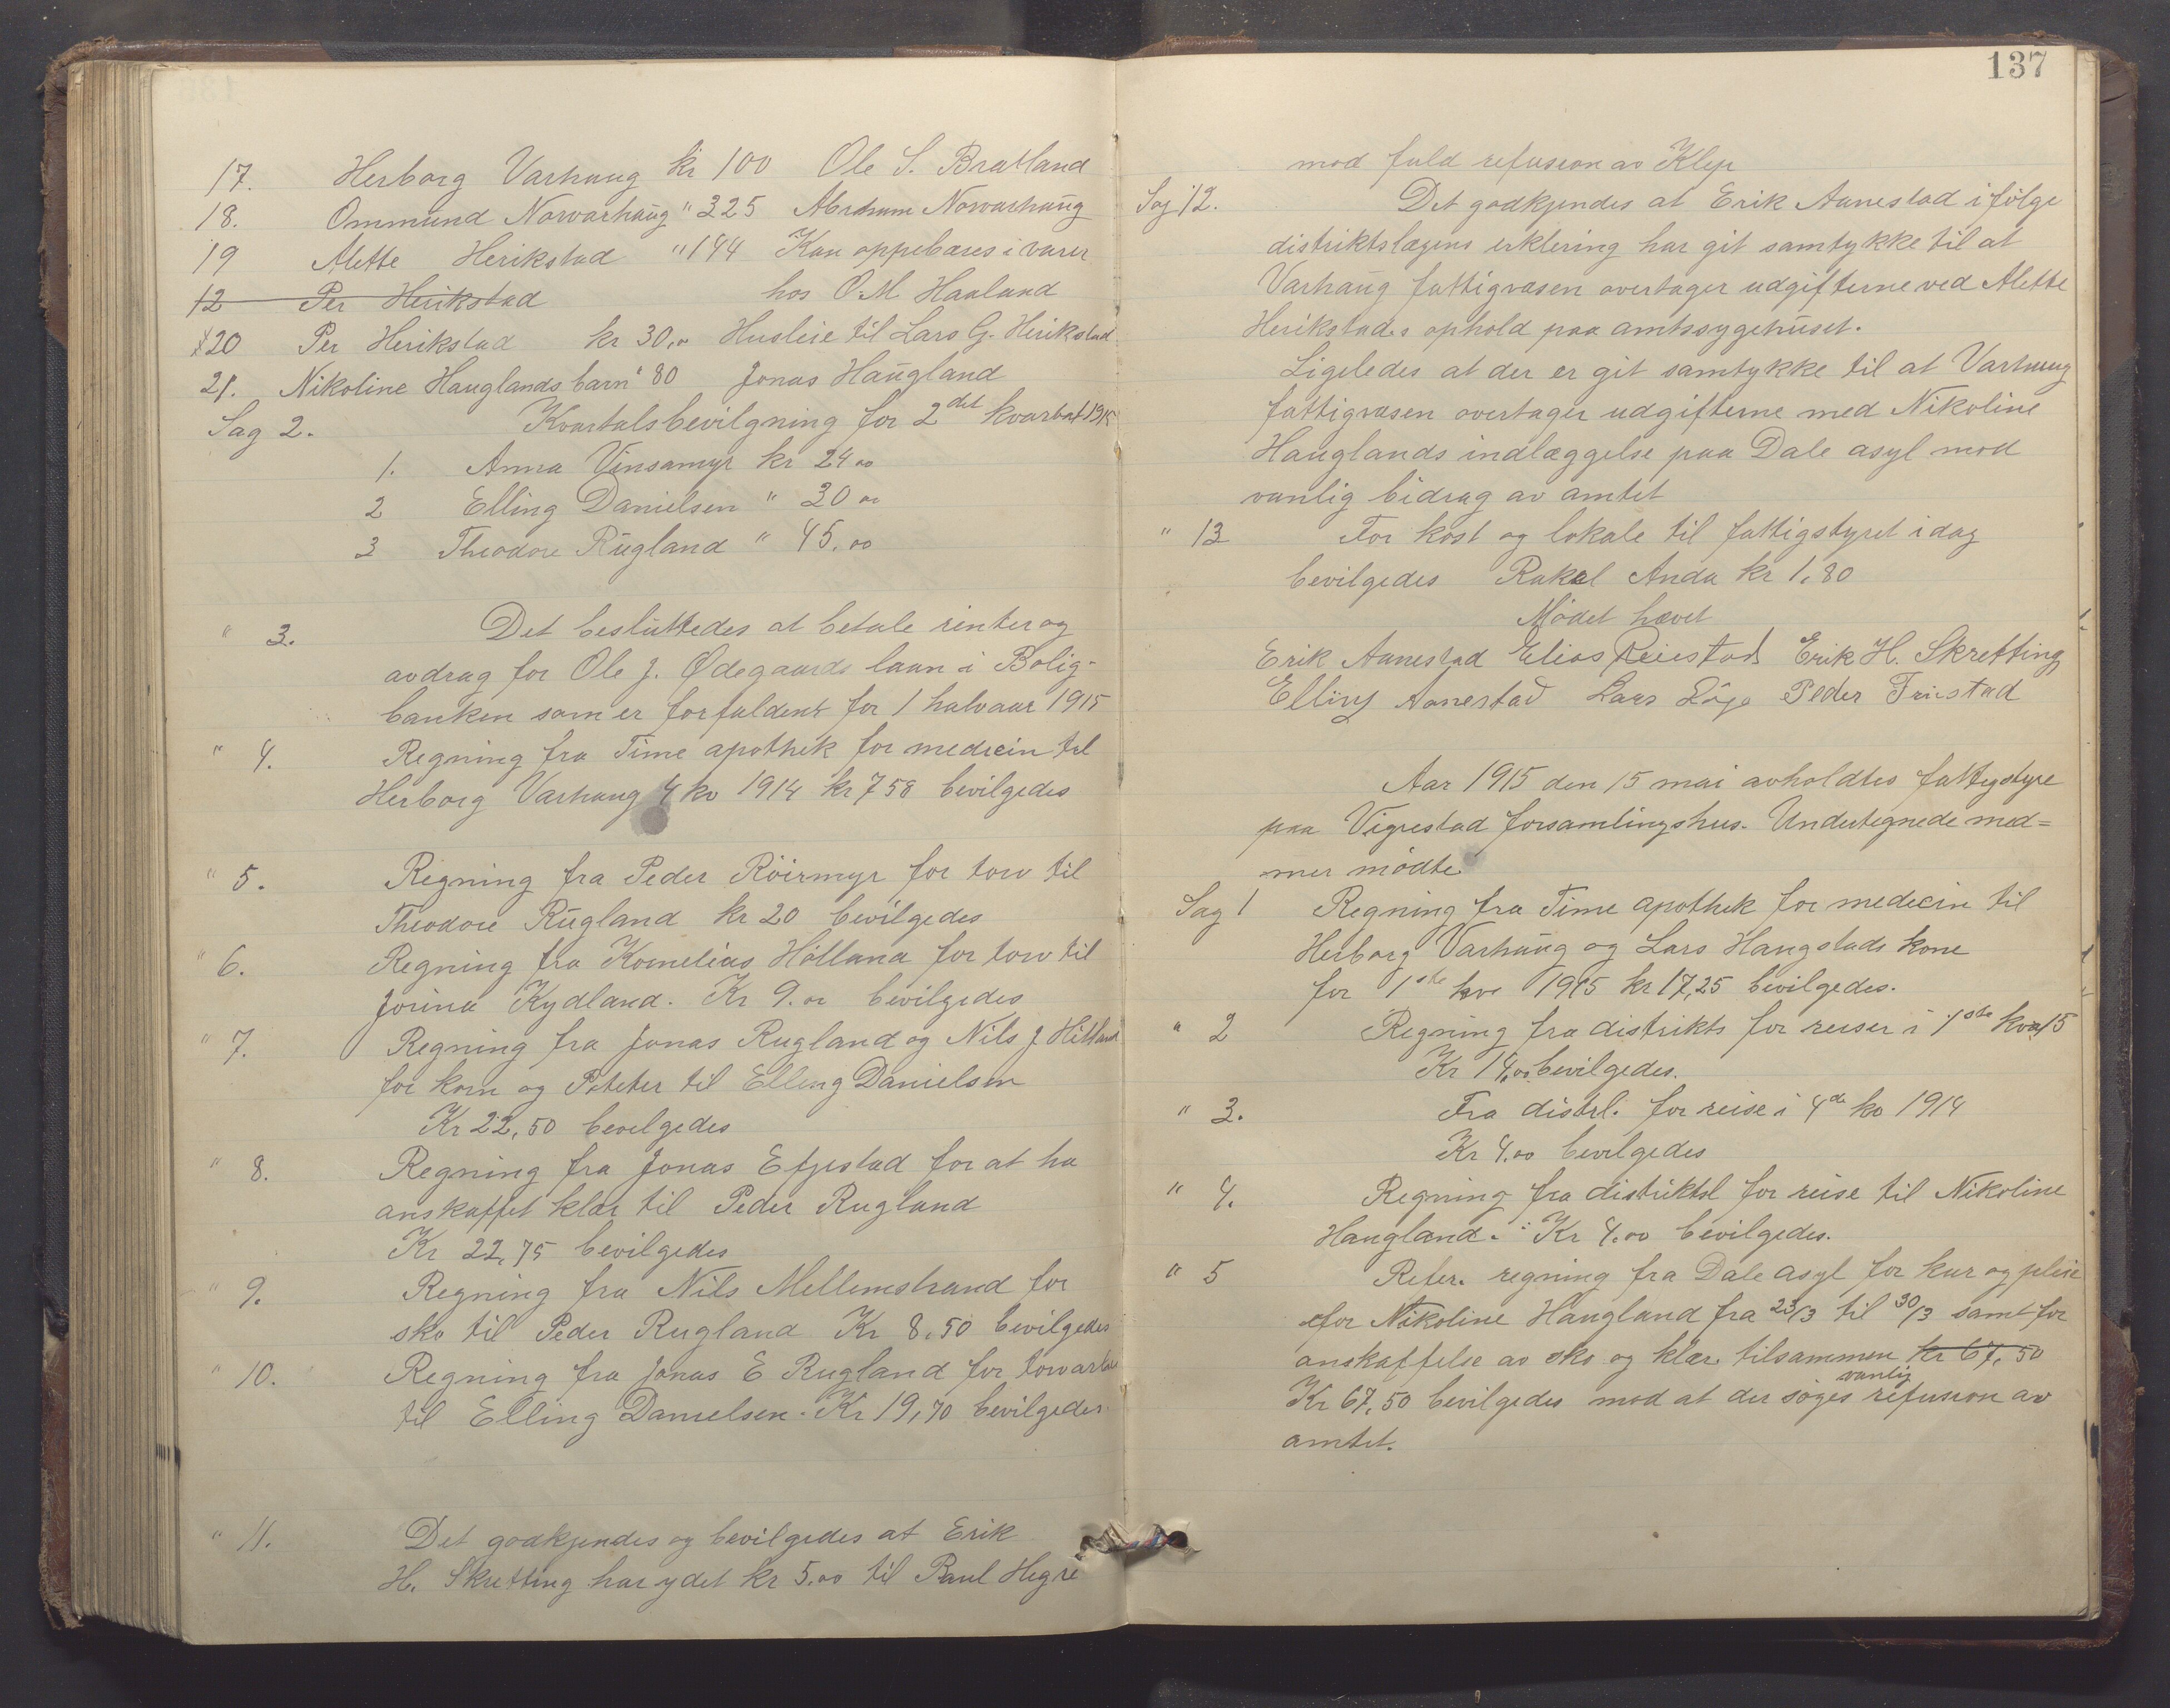 17. Herborg Varhaug kr 100 Ole S. Bratland
18. Ommund Novarhaug " 325 Abraham Novarhaug
19 Alette Herikstad " 144 Kan oppebæres i varer
12 Per Herikstad hos O.M Haaland
20 Per Herikstad kr 30,00 Husleie til Lars G. Herikstad
21. Nikoline Hauglands barn " 80 Jonas Haugland
Sag 2. Kvartalsbevilgning for 2det kvartal 1915
1. Anna Vinsamyr kr 24 00
2 Elling Danielsen " 30 00
3 Theodore Rugland " 45.00
" 3. Det besluttedes at betale renter og
avdrag for Ole J. Ødegaards laan i Bolig-
banken som er forfaldent for 1 halvaar 1915
" 4. Regning fra Time apothek for medicin til
Herborg Varhaug 4 kv 1914 kr 7 58 bevilgedes
" 5. Regning fra Peder Röirmyr for torv til
Theodore Rugland kr 20 bevilgedes
" 6. Regning fra Kornelius Hölland for torv til
Jorina Kydland. Kr 9.00 bevilgedes
" 7. Regning fra Jonas Rugland og Nils J Hölland
for korn og Poteter til Elling Danielsen
Kr 22,50 bevilgedes
" 8. Regning fra Jonas Efjestad for at ha
anskaffet klær til Peder Rugland
Kr 22,75 bevilgedes
" 9. Regning fra Nils Mellemstrand for
sko til Peder Rugland Kr 8,50 bevilgedes
" 10. Regning fra Jonas E Rugland for
til Elling Danielsen. Kr 19,70 bevilgedes.
" 11. Det godkjendes og bevilgedes at Erik
H. Skretting har ydet kr 5.00 til Paul Hegre
137
mod fuld refusion av Klep
Sag 12. Det godkjendes at Erik Aanestad i følge
distriktslægens erklering har git samtykke til at
Varhaug fattigvæsen overtager udgifterne ved Alette
Herikstads ophold paa amtssygehuset.
Ligeledes at der er git samtykke til at Varhaug
fattigvæsen overtager udgifterne med Nikoline
Hauglands indlæggelse paa Dale asyl mod
vanlig bidrag av amtet
" 13 For kost og lokale til fattigstyret i dag
bevilgedes Rakel Anda kr 1,80
Mödet hævet
Erik Aanestad Elias Reiestad Erik H. Skretting
Elling Aanestad Lars Lige Peder Fristad
Aar 1915 den 15 mai avholdtes fattigstyre
paa Vigrestad forsamlingshus. Undertegnede med=
mer mödte
Sag 1 Regning fra Time apothek for medicin til
Herborg Varhaug og Lars Haugstads kone
for 1ste kv 1915 kr 17,25 bevilgedes.
" 2 Regning fra distrikts for reiser i 1ste kva 15
Kr 14,00 bevilgedes.
" 3. Fra distrl. for reise i 4de kv 1914
Kr 4.00 bevilgedes
" 4. Regning fra distriktsl for reise til Nikoline
Haugland. Kr 4.00 bevilgedes.
" 5 Refer. regning fra Dale asyl for kur og pleie
for Nikoline Haugland fra 23/3 til 30/3 samt for
anskaffelse av sko og klær. tilsammen kr 67,50
Kr 67,50 bevilgedes mod at der söges vanlig refusion av
amtet.